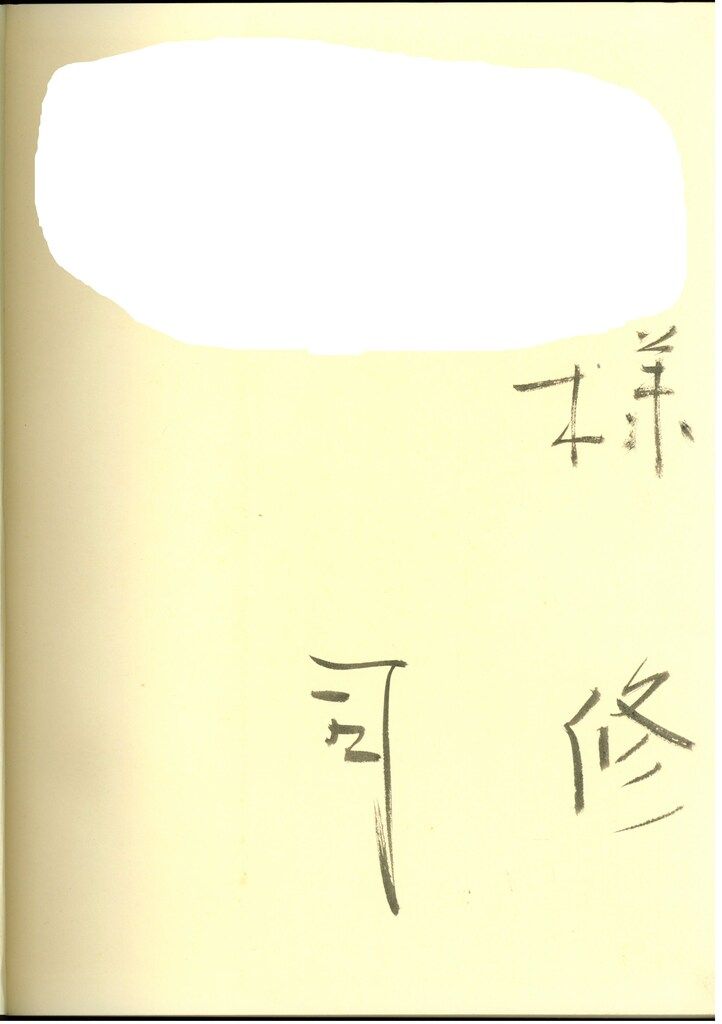 様
司修